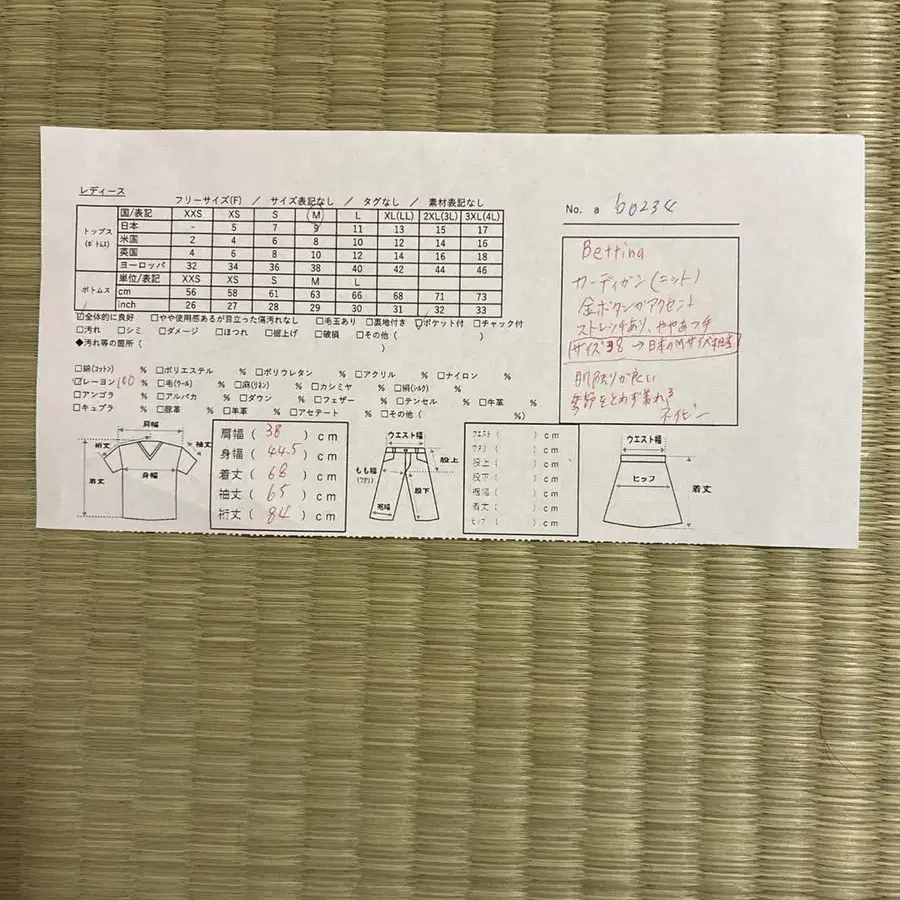 レディース
フリーサイズ(F) ／ サイズ表記なし ／ タグなし ／ 素材表記なし
No. a b0234
トップス (ボトムス) 国/表記 XXS XS S M L XL(LL) 2XL(3L) 3XL(4L)
日本 - 5 7 9 11 13 15 17
米国 2 4 6 8 10 12 14 16
英国 4 6 8 10 12 14 16 18
ヨーロッパ 32 34 36 38 40 42 44 46
ボトムス 単位/表記 XXS XS S M L
cm 56 58 61 63 66 68 71 73
inch 26 27 28 29 30 31 32 33
☑全体的に良好 □やや使用感あるが目立った傷汚れなし □毛玉あり □裏地付き ☑ポケット付 □チャック付
□汚れ □シミ □ダメージ □ほつれ □裾上げ □破損 □その他 ( )
◆汚れ等の箇所 ( )
□綿(コットン) % □ポリエステル % □ポリウレタン % □アクリル % □ナイロン %
☑レーヨン100 % □毛(ウール) % □麻(リネン) % □カシミヤ % □絹(シルク) %
□アンゴラ % □アルパカ % □ダウン % □フェザー % □テンセル % □牛革 %
□キュプラ % □豚革 % □羊革 % □アセテート % □その他 ( %)
Bettina
カーディガン(ニット)
金ボタンがアクセント
ストレッチあり、ややあつ手
サイズ38 → 日本のMサイズ相当
肌触りが良い
季節をとわず着れる
ネイビー
肩幅
裄丈
袖丈
身幅
着丈
肩幅 ( 38 ) cm
身幅 ( 44.5 ) cm
着丈 ( 68 ) cm
袖丈 ( 65 ) cm
裄丈 ( 84 ) cm
ウエスト幅
股上
もも幅
(ワタリ)
股下
裾幅
ウエスト ( ) cm
ワタリ ( ) cm
股上 ( ) cm
股下 ( ) cm
裾幅 ( ) cm
着丈 ( ) cm
ヒップ ( ) cm
ウエスト幅
ヒップ
着丈